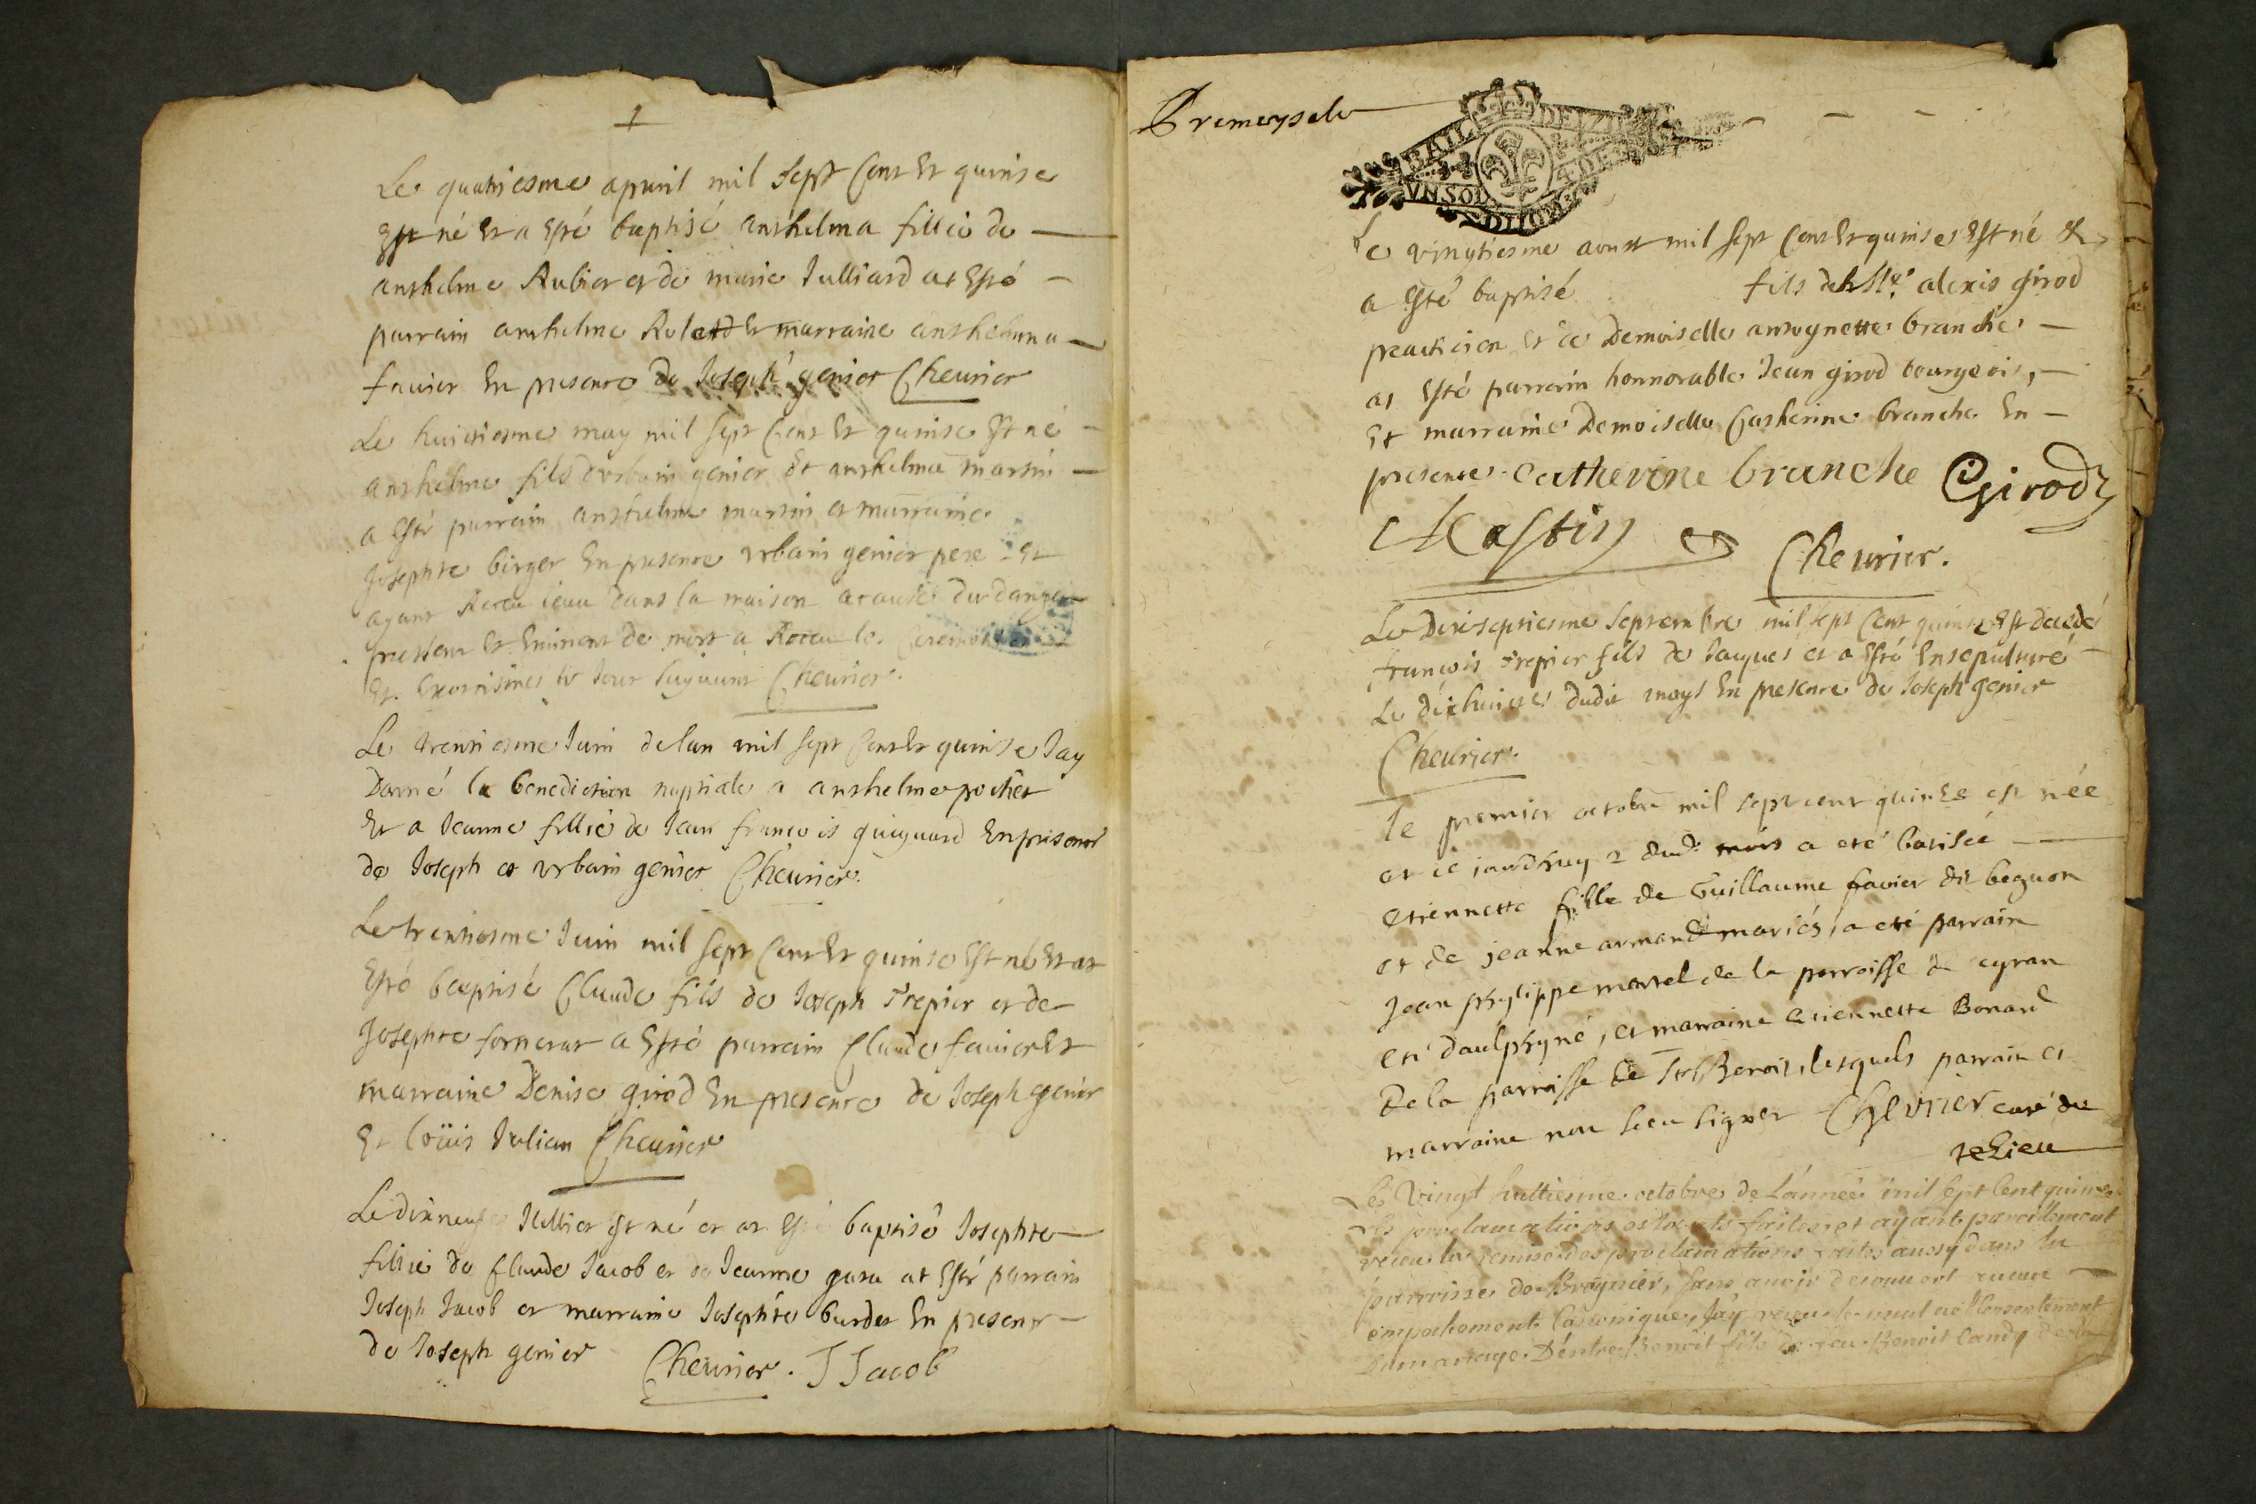 1
Le quatriesme apvril mil sept Cent Et quinse
Est né Et a Esté baptisé anthelma fillie de
anthelme Aubier et de marie Julliard at Esté
parrain anthelme Rolend Et marraine anthelma
favier En presence de Joseph genier Cheurier
Le huictiesme may mil sept Cent Et quinse Est né
anthelme fils durbain genier Et anthelma martin
a Esté parrain anthelme martin et marraine
Josephte birger En presence vrbain genier pere Et
ayant Receu leau dans la maison acause du danger
pressent Et Eminent de mort a Receu les Ceremonies
Et Exorsismes le Jour suyuant Cheurier
Le trentiesme Juin de lan mil sept Cent Et quinse Jay
Donné la benediction nuptiale a anthelme pochet
Et a Jeanne fillie de Jean francois guiguard En presence
de Joseph et vrbain genier Cheurier
Le trentiesme Juin mil sept Cent Et quinse Est né Et at
Esté baptisé Claude fils de Joseph Trepier et de
Josephte fornerat a Esté parrain Claude favier Et
marraine Denise girod En presence de Joseph genier
Et Loüis Julian Cheurier
Le dixneuf Juillier Est né et at Esté baptisé Josephte
fillie de Claude Jacob et de Jeanne gara at Esté parrain
Joseph Jacob et marraine Josephte burdet En presence
de Joseph genier Cheurier . J Jacob
Premeysele
BAIL DE
VN SOL 4 DE
DIION
Le vingtiesme aoust mil sept Cent Et quinse Est né Et
a Esté baptisé fils de Mr. alexis girod
practicien Et de Demoiselle antoynette branche
at Esté parrain honnorable Jean girod bourgeois,
Et marraine Demoiselle Catherine branche En
presence. Catherine branche Girod
Mastin Cheurier.
Le Dixseptiesme Septembre mil sept Cent quinse Est decedé
François Trepier fils de Jaques et a Esté Ensepulturé
Le dixhuictes dudit moys En presence de Joseph genier
Cheurier.
Le premier octobre mil sept cent quinze est née
et ce jourdhuy 2 dud. mois a eté batisée
etiennette fille de Guillaume favier dit beguon
et de jeanne armand mariés, a eté parrain
Jean phylippe martel de la parroisse de eyran
en daulphyné, et marraine etiennette Bonard
de la parroisse de St Benoit, lesquels parrain et
marraine non sceu signer Chevrier curé du
te Lieu
Le Vingt huittiesme octobre de L'année mil sept Cent quinze
Les proclamations estants faites et ayant pareillement
receu la remise des proclamations faites aussy dans la
parroisse de Bregnier, sans auoir decouuert aucun
empechement Canonique, Jay receu le mutuel Consentement
Du mariage D'entre Benoit fils de feu Benoit Candy de la